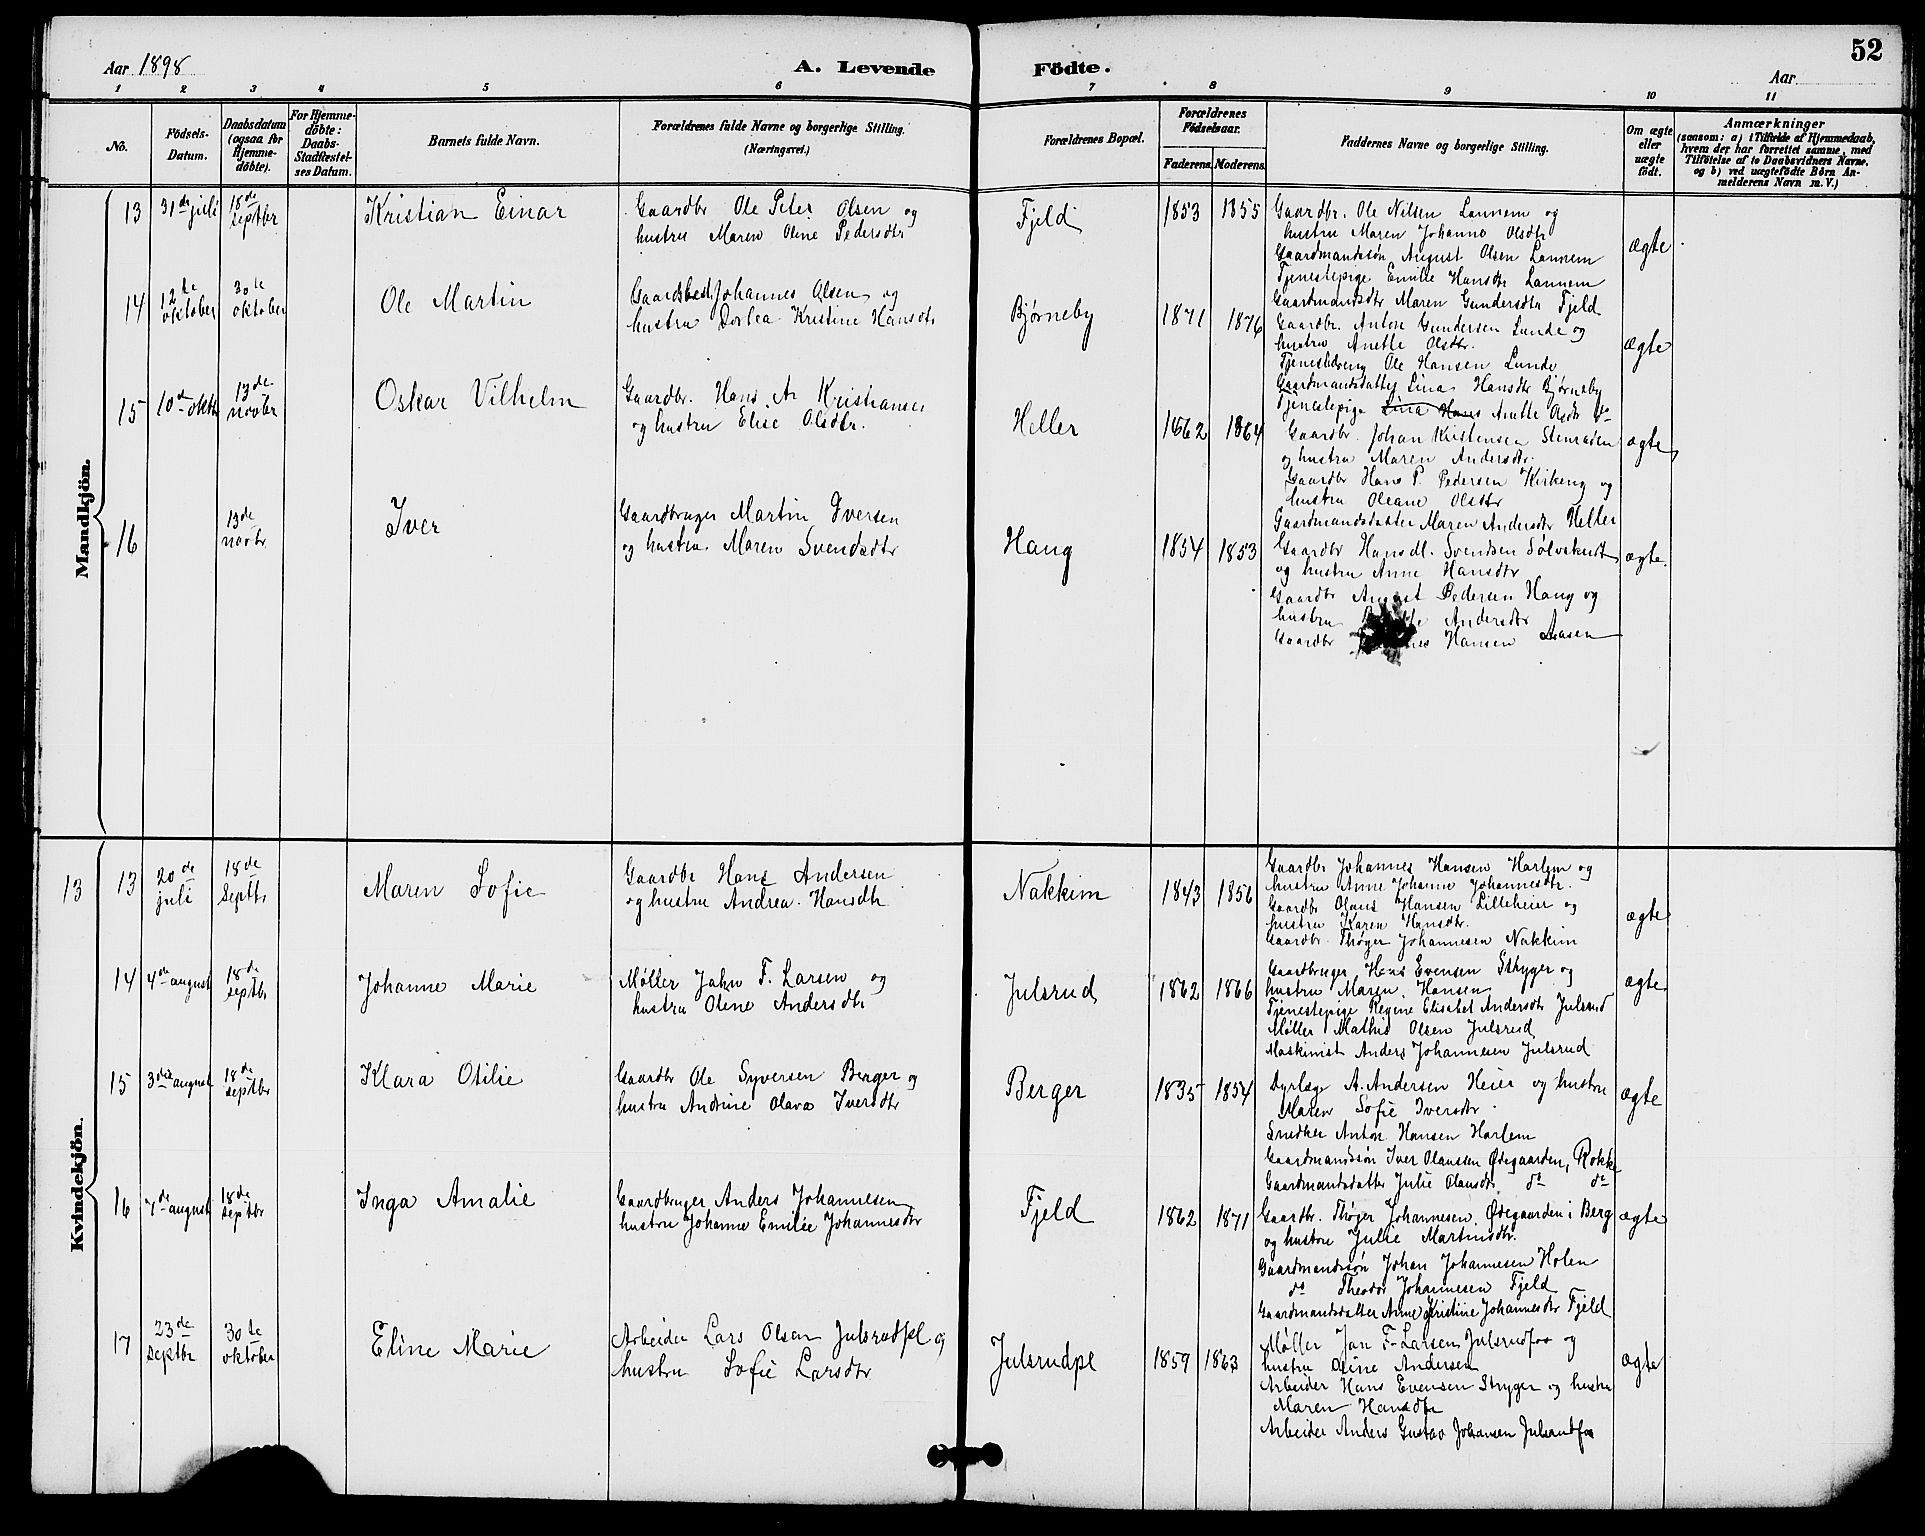 52
Aar 1898
A. Levende Födte.
Aar
1 2 3 4 5 6 7 8 9 10 11
No.
Födsels-Datum.
Daabsdatum (ogsaa for Hjemmedöbte).
For Hjemmedöbte: Daabs-Stadfæstelses Datum.
Barnets fulde Navn.
Forældrenes fulde Navne og borgerlige Stilling. (Næringsvei.)
Forældrenes Bopæl.
Forældrenes Födselsaar.
Faderens. Moderens.
Faddernes Navne og borgerlige Stilling.
Om ægte eller uægte födt.
Anmærkninger
(saasom: a) i Tilfælde af Hjemmedaab, hvem der har forrettet samme, med Tilföielse af to Daabsvidners Navne, og b) ved uægtefödte Börn Anmelderens Navn m. V.)
Mandkjön.
13
31 de juli
18 de septbr
Kristian Einar
Gaardbr Ole Peter Olsen og
hustru Maren Oline Pedersdtr
Fjeld
1853 1855
Gaardbr. Ole Nilsen Lannem og
hustru Maren Johanne Olsdtr
Gaardmandssøn August Olsen Lannem
Tjenestepige Emilie Hansdtr Lannem
Gaardmandsdtr Maren Gundersdtr Fjeld
ægte
14
12 te oktober
30 te oktober
Ole Martin
Gaardbest. Johannes Olsen og
hustru Dortea Kristine Hansdtr
Bjørneby
1871 1876
Gaardbr. Anton Gundersen Lunde og
hustru Anette Olsdtr.
Tjenestedreng Ole Hansen Lunde
Gaardmandsdatter Lina Hansdtr Bjørneby
Tjenestepige Lina Hans Anette Olsdtr do
ægte
15
10 de oktbr
13 de novbr
Oskar Vilhelm
Gaardbr. Hans A. Kristiansen
og hustru Elise Olsdtr.
Heller
1862 1864
Gaardbr. Johan Kristensen Stenraden
og hustru Maren Andersdtr.
Gaardbr Hans P. Pedersen Kirkeng og
hustru Oleane Olsdtr
Gaardmandsdatter Maren Andersdtr Heller
ægte
16
13 de novbr
Iver
Gaardbruger Martin Iversen
og hustru Maren Svendsdtr
Haug
1854 1853
Gaardbr Hans M. Svendsen Sølvskudt
og hustru Anne Hansdtr
Gaardbr August Pedersen Haug og
hustru Andersdtr
Gaardbr Hansen Aasen
ægte.
Kvindekjön.
13 13
20 de juli
18 de Septbr
Maren Sofie
Gaardbr Hans Andersen
og hustru Andrea Hansdtr
Nakkim
1843 1856
Gaardbr Johannes Hansen Harlem og
hustru Anne Johanne Johannesdtr.
Gaardbr Olaus Hansen Lilleheier og
hustru Karen Hansdtr.
Gaardbr. Thøger Johannesen Nakkim
ægte
14
4 de august
18 de septbr
Johanne Marie
Møller John F. Larsen og
hustru Oline Andersdtr
Julsrud
1862 1866
Gaardbruger Hans Evensen Stryger og
hustru Maren Hansen
Tjenestepige Regine Elisabet Andersdtr Julsrud
Møller Mathis Olsen Julsrud
Maskinist Anders Johannesen Julsrud
ægte
15
3 die august
18 de septbr
Klara Otilie
Gaardbr Ole Syversen Berger og
hustru Andrine Olava Iversdtr
Berger
1835 1854
Dyrlæge A. Andersen Heier og hustru
Maren Sofie Iversdtr.
Snedker Anton Hansen Harlem
Gaardmandssøn Iver Olausen Ødegaarden, Rokke
Gaardmandsdatter Julie Olausdtr do do
ægte
16
7 de august
18 de septbr
Inga Amalie
Gaardbruger Anders Johannesen
hustru Johanne Emilie Johannesdtr
Fjeld
1862 1871
Gaardbr. Thøger Johannesen, Ødegaarden i Berg
og hustru Julie Martinsdtr.
Gaardmandssøn Johan Johannesen Holen
do Theodor Johannesen Fjeld
Gaardmandsdatter Anne Kristine Johannesdtr Fjeld
ægte
17
23 de septbr
30 te oktober
Eline Marie
Arbeider Lars Olsen Julsrudpl og
hustru Sofie Larsdtr
Julsrudpl
1859 1863
Møller Jan F. Larsen Julsrudfos og
hustru Oline Andersen
Arbeider Hans Evensen Stryger og hustru
Maren Hansdtr
Arbeider Anders Gustav Johansen Julsrudfos
ægte